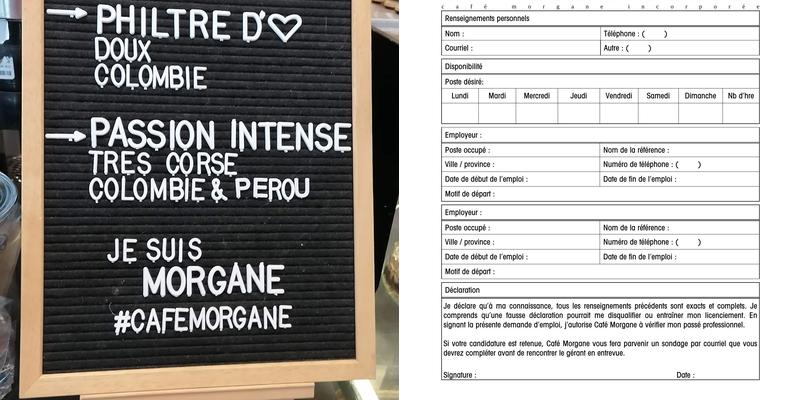 → PHILTRE D'♡
DOUX
COLOMBIE
→ PASSION INTENSE
TRES CORSE
COLOMBIE & PEROU
JE SUIS
MORGANE
#CAFEMORGANE
café morgane incorporée
Renseignements personnels
Nom : Téléphone : ( )
Courriel : Autre : ( )
Disponibilité
Poste désiré:
Lundi Mardi Mercredi Jeudi Vendredi Samedi Dimanche Nb d'hre
Employeur :
Poste occupé : Nom de la référence :
Ville / province : Numéro de téléphone : ( )
Date de début de l'emploi : Date de fin de l'emploi :
Motif de départ :
Employeur :
Poste occupé : Nom de la référence :
Ville / province : Numéro de téléphone : ( )
Date de début de l'emploi : Date de fin de l'emploi :
Motif de départ :
Déclaration
Je déclare qu'à ma connaissance, tous les renseignements précédents sont exacts et complets. Je
comprends qu'une fausse déclaration pourrait me disqualifier ou entraîner mon licenciement. En
signant la présente demande d'emploi, j'autorise Café Morgane à vérifier mon passé professionnel.
Si votre candidature est retenue, Café Morgane vous fera parvenir un sondage par courriel que vous
devrez compléter avant de rencontrer le gérant en entrevue.
Signature : Date :